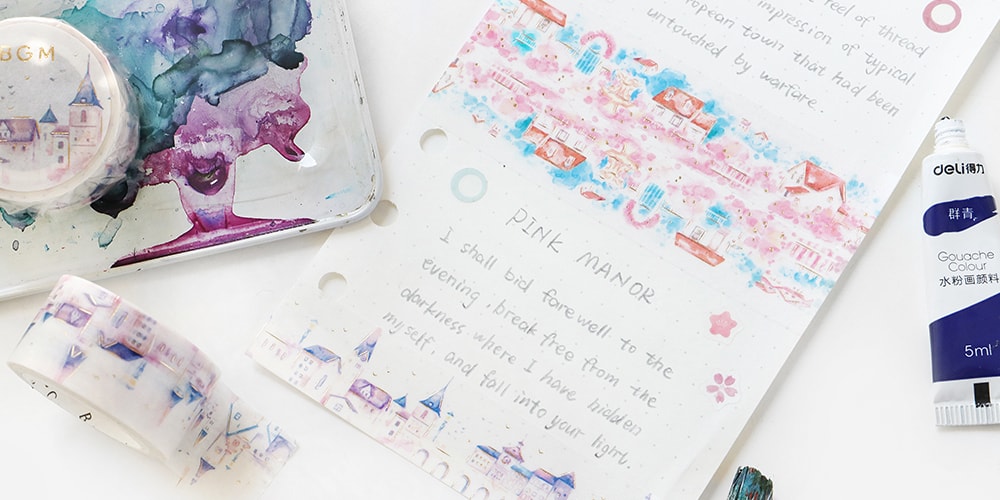 BGM
feel of thread
impression of typical
European town that had been
untouched by warfare.
PINK MANOR
I shall bid farewell to the
evening, break free from the
darkness where I have hidden
myself, and fall into your light.
deli得力
群青
Gouache
Colour
水粉画颜料
5ml